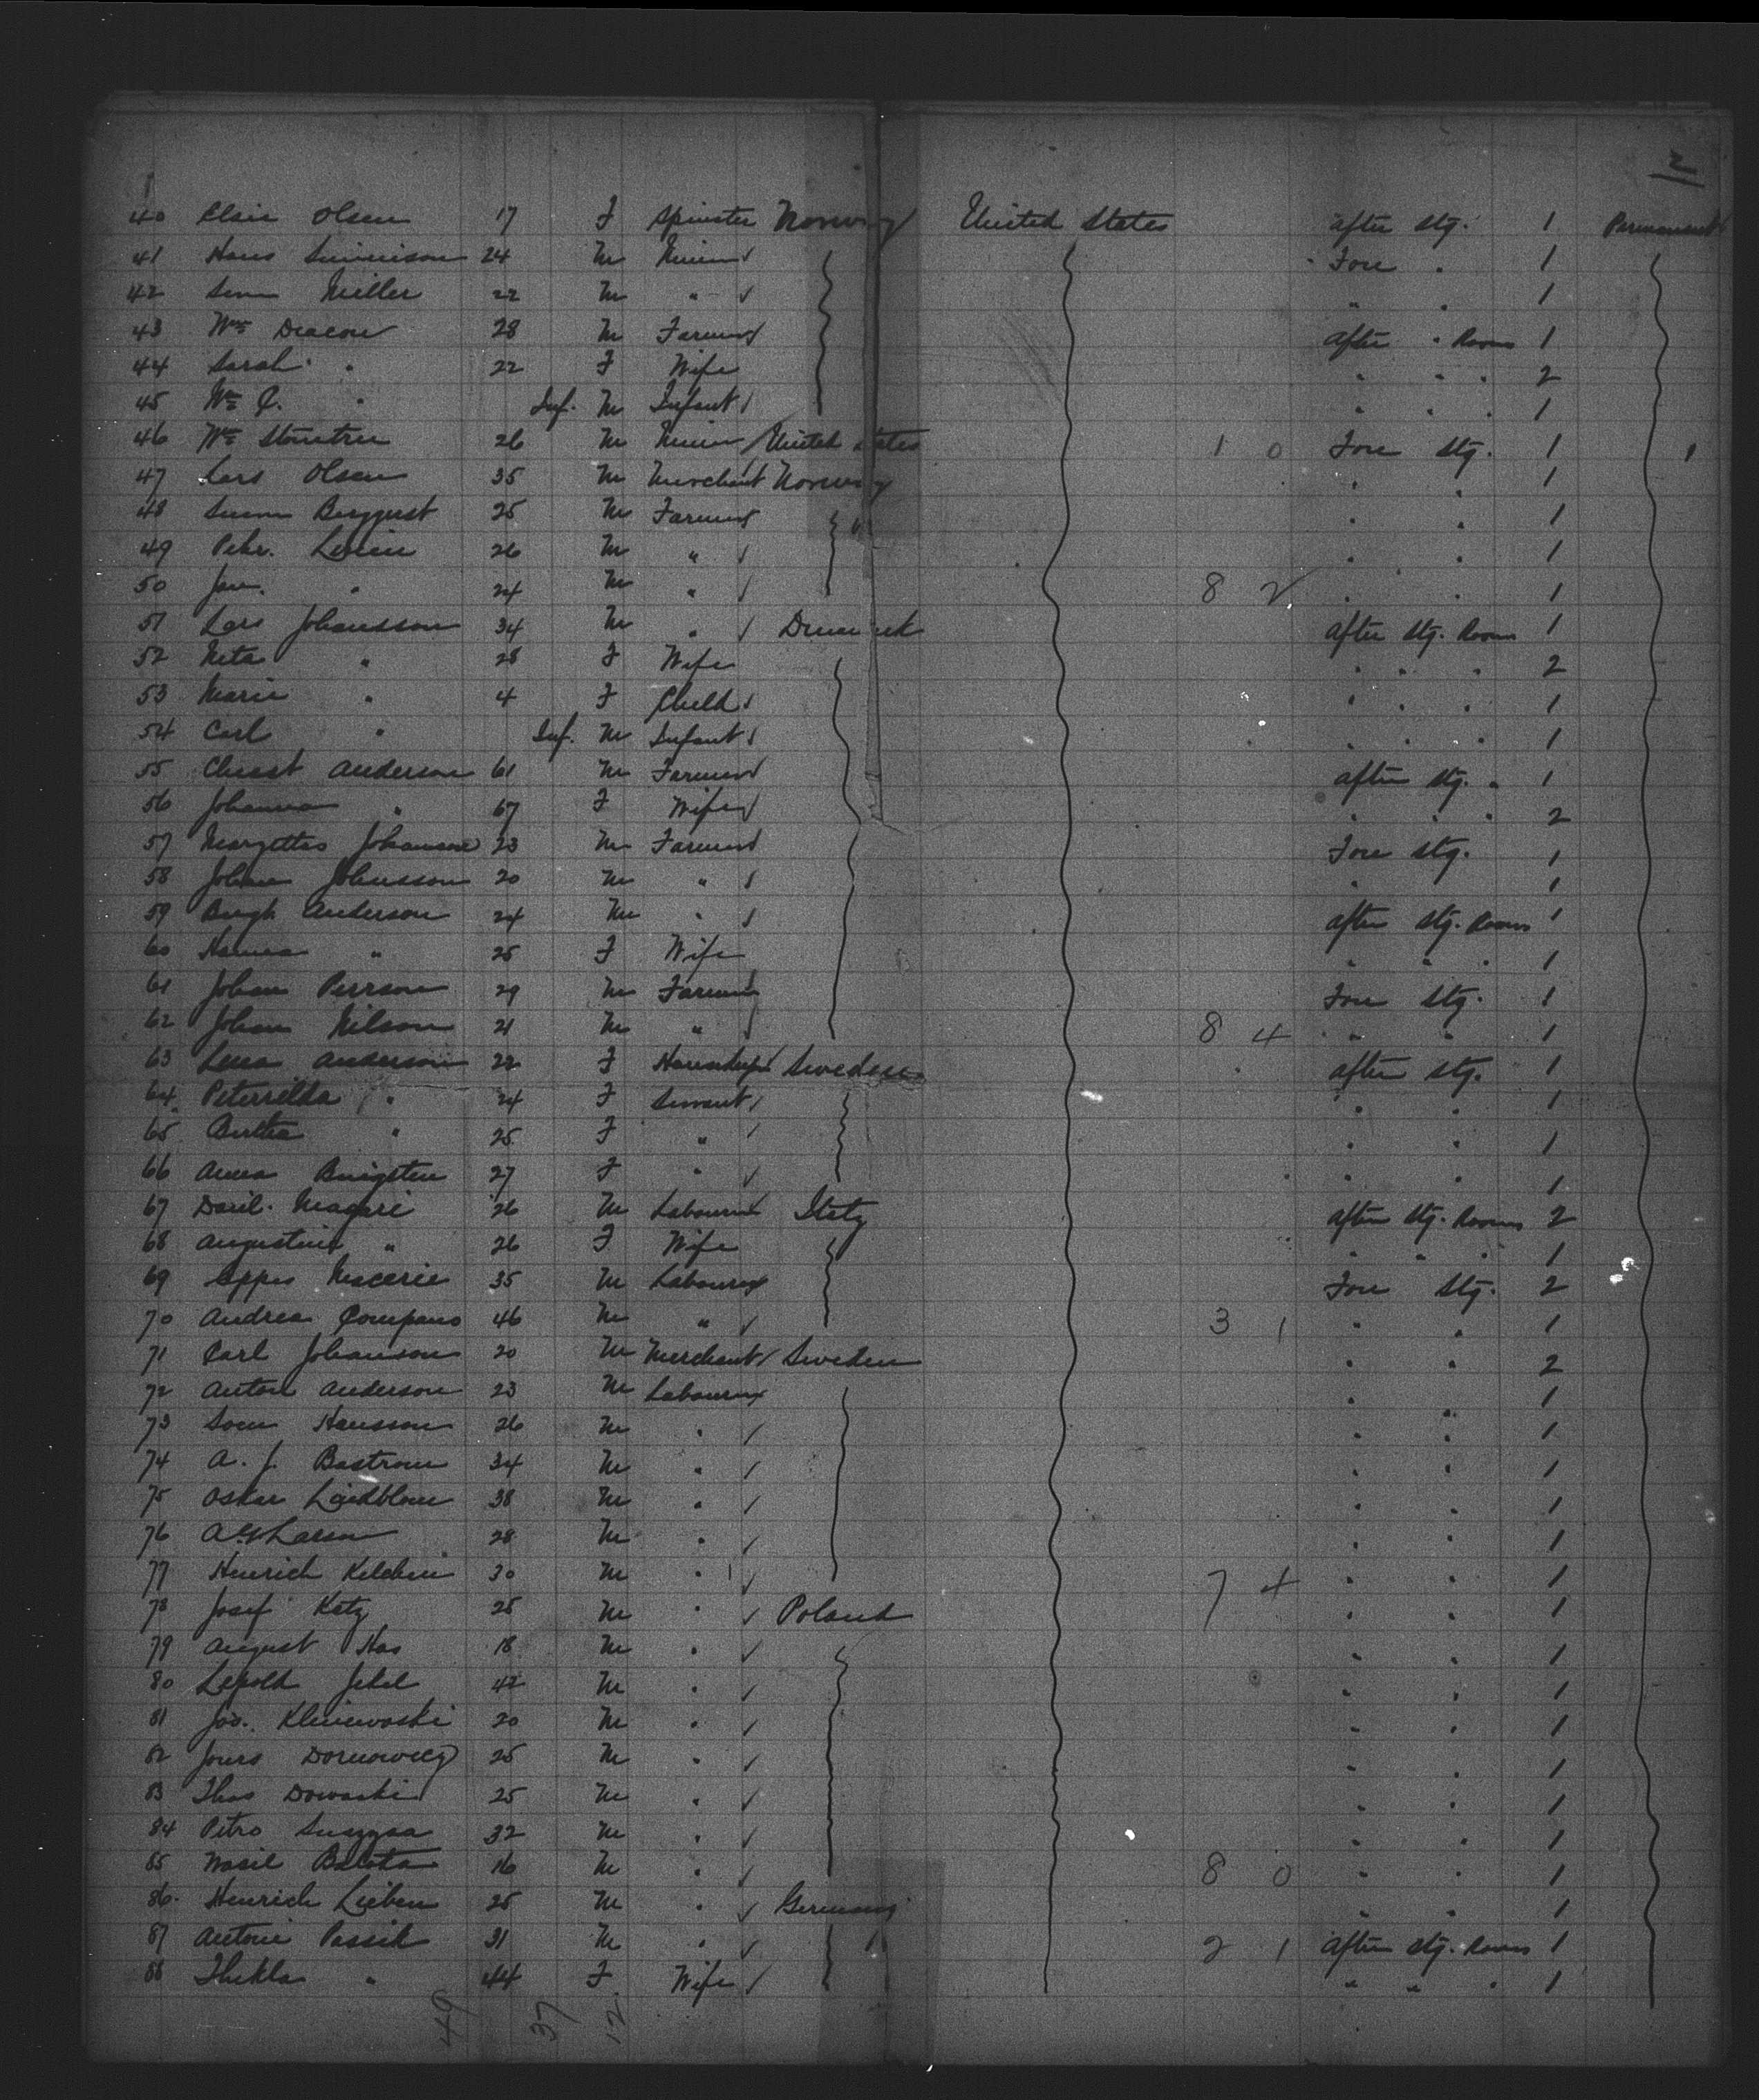 2
40 Elsie Olsen 17 F Spinster Norway United States after stg. 1 Permanent
41 Hans 24 M Miner Fore " 1
42 Miller 22 M " " " 1
43 Wm Deacon 28 M Farmer after " Room 1
44 Sarah " 22 F Wife " " " 2
45 Wm C. " Inf. M Infant " " " 1
46 Wm 26 M Miner United States 1 0 Fore stg. 1 1
47 Lars Olsen 35 M Merchant Norway " " 1
48 Bergqust 25 M Farmer " " 1
49 Pehr. 26 M " " " 1
50 Jan. " 24 M " 8 2 " " 1
51 Lars Johansson 34 M " Denmark after stg. Room 1
52 Neta " 28 F Wife " " " 2
53 Marie " 4 F Child " " " 1
54 Carl " Inf. M Infant " " " 1
55 Christ Anderson 61 M Farmer after stg. " 1
56 Johanna " 67 F Wife " " " 2
57 Johanson 23 M Farmer Fore stg. 1
58 Johan Johnsson 20 M " " 1
59 Bengh Anderson 24 M " after stg. Room 1
60 Hanna " 25 F Wife " " " 1
61 Johan Perrson 29 M Farmer Fore stg. 1
62 Johan Nilson 21 M " 8 4 " " 1
63 Lena Anderson 22 F Sweden after stg. 1
64 " 24 F Servant " " 1
65 Bertha " 25 F " " " 1
66 Anna 27 F " " " 1
67 Danl. 26 M Labourer Italy after stg. Rooms 2
68 " 26 F Wife " " " 1
69 35 M Labourer Fore stg. 2
70 Andrea Compano 46 M " 3 1 " " 1
71 Carl Johanson 20 M Merchant Sweden " " 2
72 Anton Anderson 23 M Labourer " " 1
73 Hansson 26 M " " " 1
74 A. J. Bostrom 34 M " " " 1
75 Oskar 38 M " " " 1
76 Larson 28 M " " " 1
77 Henrich 30 M " 7 4 " " 1
78 Josef Katz 25 M " Poland " " 1
79 August Has 18 M " " " 1
80 Lepold Jekel 42 M " " " 1
81 Jos. 20 M " " " 1
82 25 M " " " 1
83 Thos Dowaski 25 M " " " 1
84 Petro 32 M " " " 1
85 Wasil Balota 16 M " 8 0 " " 1
86. Henrich Lieben 25 M " Germany " " 1
87 Antoni Passik 31 M " 2 1 after stg. Room 1
88 Thekla " 44 F Wife " " " 1
49 37 12